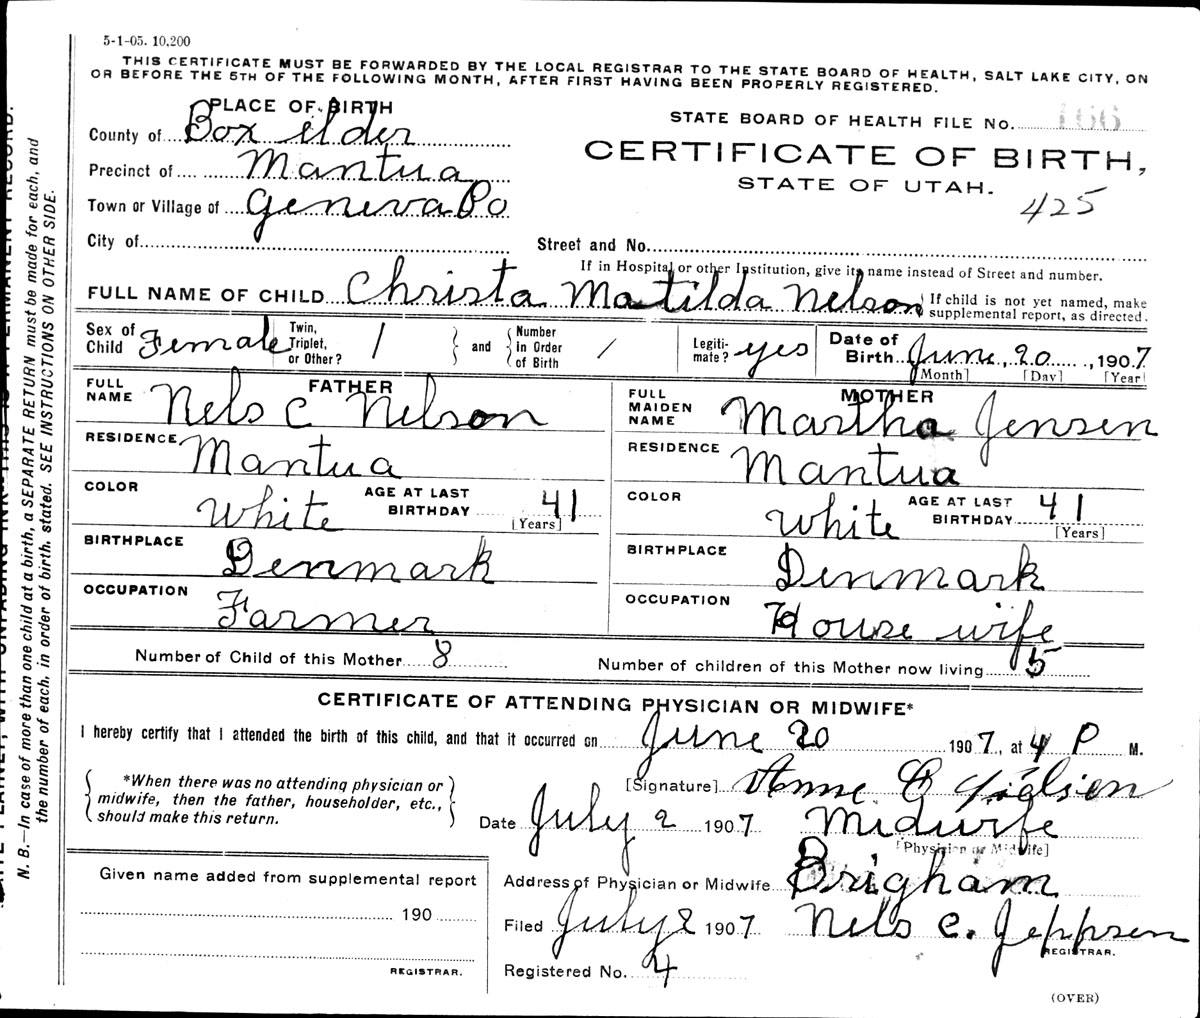 5-1-05. 10,200
THIS CERTIFICATE MUST BE FORWARDED BY THE LOCAL REGISTRAR TO THE STATE BOARD OF HEALTH, SALT LAKE CITY, ON
OR BEFORE THE 5TH OF THE FOLLOWING MONTH, AFTER FIRST HAVING BEEN PROPERLY REGISTERED.
PLACE OF BIRTH
County of Box elder
Precinct of Mantua
Town or Village of Geneva Po
City of
STATE BOARD OF HEALTH FILE No. 166
CERTIFICATE OF BIRTH,
STATE OF UTAH.
425
Street and No.
If in Hospital or other Institution, give its name instead of Street and number.
FULL NAME OF CHILD Christa Matilda Nelson
If child is not yet named, make
supplemental report, as directed.
Sex of Child Female
Twin, Triplet, or Other? 1
and
Number in Order of Birth /
Legiti-mate? yes
Date of Birth June 20, 1907
[Month] [Day] [Year]
FATHER
FULL NAME Nels C Nelson
RESIDENCE Mantua
COLOR White AGE AT LAST BIRTHDAY 41
[Years]
BIRTHPLACE Denmark
OCCUPATION Farmer
MOTHER
FULL MAIDEN NAME Martha Jensen
RESIDENCE Mantua
COLOR White AGE AT LAST BIRTHDAY 41
[Years]
BIRTHPLACE Denmark
OCCUPATION House wife
Number of Child of this Mother 8
Number of children of this Mother now living 5
CERTIFICATE OF ATTENDING PHYSICIAN OR MIDWIFE*
I hereby certify that I attended the birth of this child, and that it occurred on June 20 1907, at 4 P M.
*When there was no attending physician or
midwife, then the father, householder, etc.,
should make this return.
[Signature] Anne C
Date July 2 1907 Midwife
[Physician or Midwife]
Given name added from supplemental report
190
REGISTRAR.
Address of Physician or Midwife Brigham
Filed July 8 1907 Nels C. Jeppsen
REGISTRAR.
Registered No. 4
(OVER)
N. B.—In case of more than one child at a birth, a SEPARATE RETURN must be made for each, and
the number of each, in order of birth, stated. SEE INSTRUCTIONS ON OTHER SIDE.